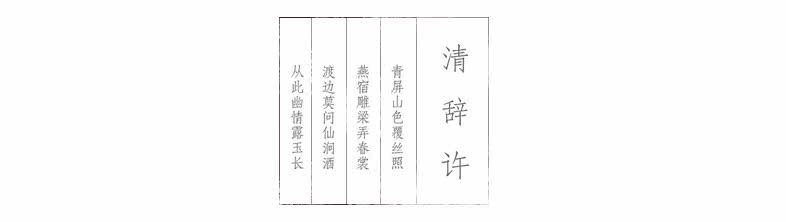 清辞许
青屏山色覆丝照
燕宿雕梁弄春裳
渡边莫问仙涧酒
从此幽情露玉长